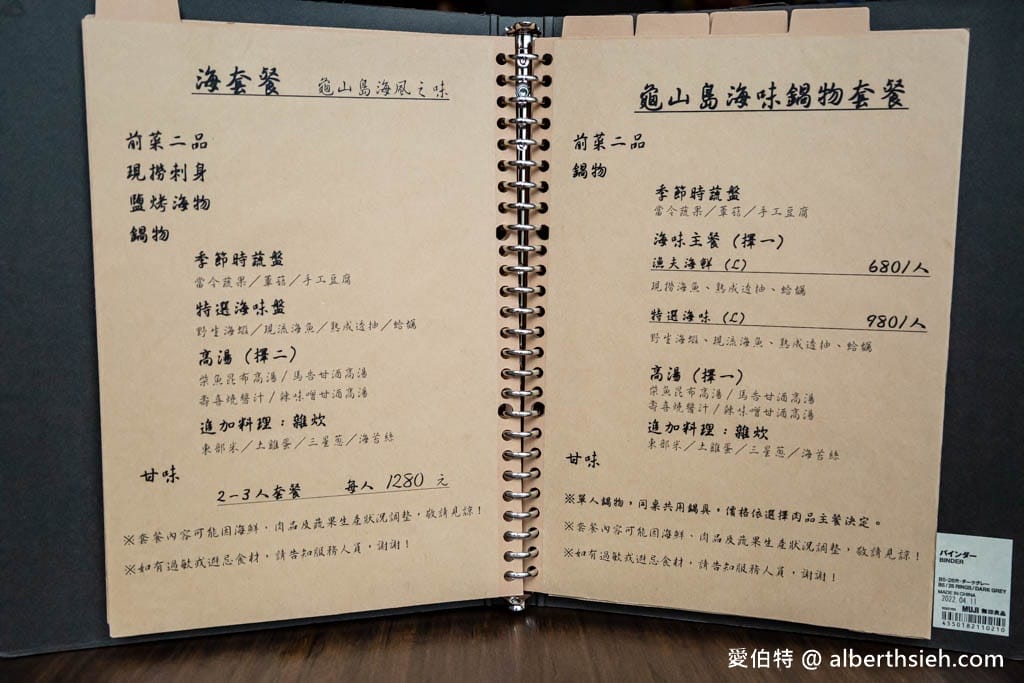 海套餐 龜山島海風之味
前菜二品
現撈刺身
鹽烤海物
鍋物
季節時蔬盤
當令蔬果／蕈菇／手工豆腐
特選海味盤
野生海蝦／現流海魚／熟成透抽／蛤蠣
高湯 (擇二)
柴魚昆布高湯／馬告甘酒高湯
壽喜燒醬汁／辣味噌甘酒高湯
進加料理：雜炊
東部米／土雞蛋／三星蔥／海苔絲
甘味
2-3人套餐 每人 1280 元
※套餐內容可能因海鮮、肉品及蔬果生產狀況調整，敬請見諒！
※如有過敏或避忌食材，請告知服務人員，謝謝！
龜山島海味鍋物套餐
前菜二品
鍋物
季節時蔬盤
當令蔬果／蕈菇／手工豆腐
海味主餐 (擇一)
漁夫海鮮 (L) 680/人
現撈海魚、熟成透抽、蛤蠣
特選海味 (L) 980/人
野生海蝦、現流海魚、熟成透抽、蛤蠣
高湯 (擇一)
柴魚昆布高湯／馬告甘酒高湯
壽喜燒醬汁／辣味噌甘酒高湯
進加料理：雜炊
東部米／土雞蛋／三星蔥／海苔絲
甘味
※單人鍋物，同桌共用鍋具，價格依選擇肉品主餐決定。
※套餐內容可能因海鮮、肉品及蔬果生產狀況調整，敬請見諒！
※如有過敏或避忌食材，請告知服務人員，謝謝！
バインダー
BINDER
B5・26穴・ダークグレー
B5 / 26 RINGS / DARK GREY
MADE IN CHINA
2022.04.11
MUJI 無印良品
4550182110210
愛伯特 @ alberthsieh.com